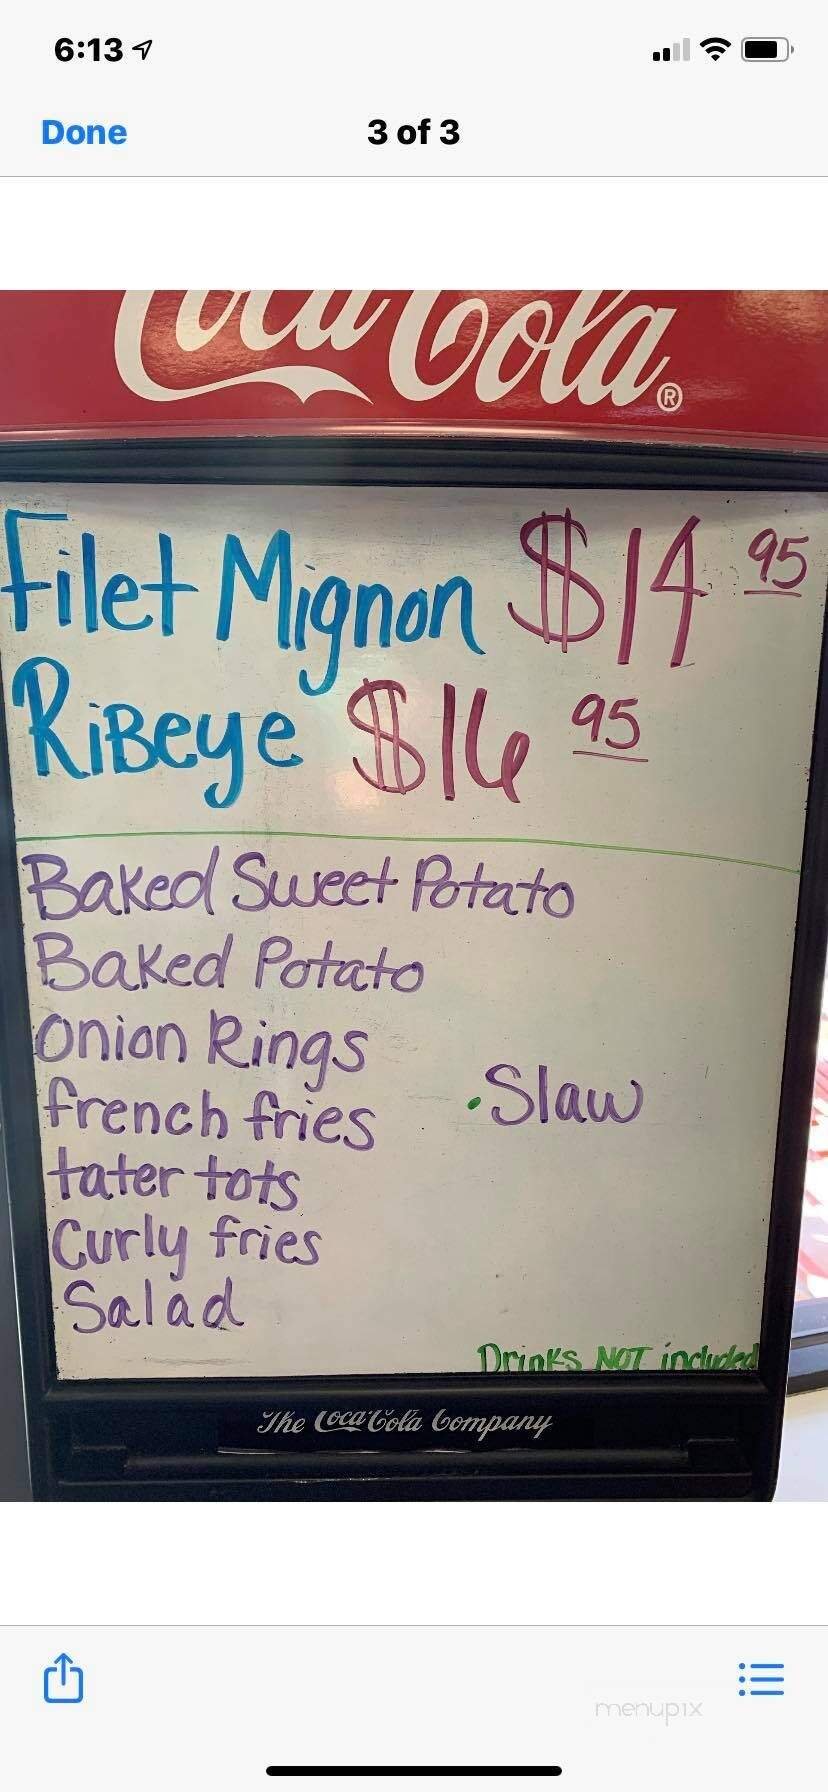 6:13
Done
3 of 3
Coca Cola®
Filet Mignon $14 95
RiBeye $16 95
Baked Sweet Potato
Baked Potato
Onion Rings
french fries
• Slaw
tater tots
Curly fries
Salad
Drinks NOT included
The Coca-Cola Company
menupix